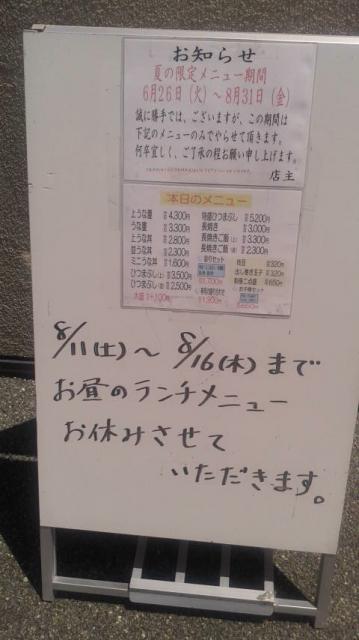 お知らせ
夏の限定メニュー期間
6月26日（火）～8月31日（金）
誠に勝手では、ございますが、この期間は
下記のメニューのみでやらせて頂きます。
何卒宜しく、ご了承の程お願い申し上げます。
店主
本日のメニュー
上うな重 4,300円
うな重 3,300円
上うな丼 2,800円
並うな丼 2,300円
ミニうな丼 1,600円
ひつまぶし(上) 3,500円
ひつまぶし(並) 2,500円
大盛り+100円
特盛ひつまぶし 5,200円
長焼き 3,000円
長焼きご飯(上) 3,300円
長焼きご飯 2,300円
320円
出し巻き玉子 320円
650円
8/11(土)～8/16(木)まで
お昼のランチメニュー
お休みさせて
いただきます。